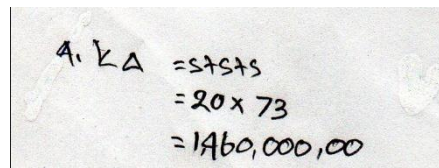 4. k Δ = s+s+s
= 20 x 73
= 1460,000,00